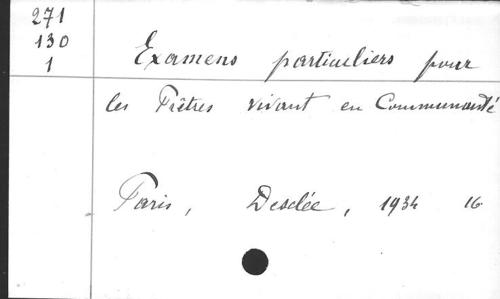 271
130
1
Examens particuliers pour
les Prêtres vivant en Communauté
Paris, Desclée, 1934 16